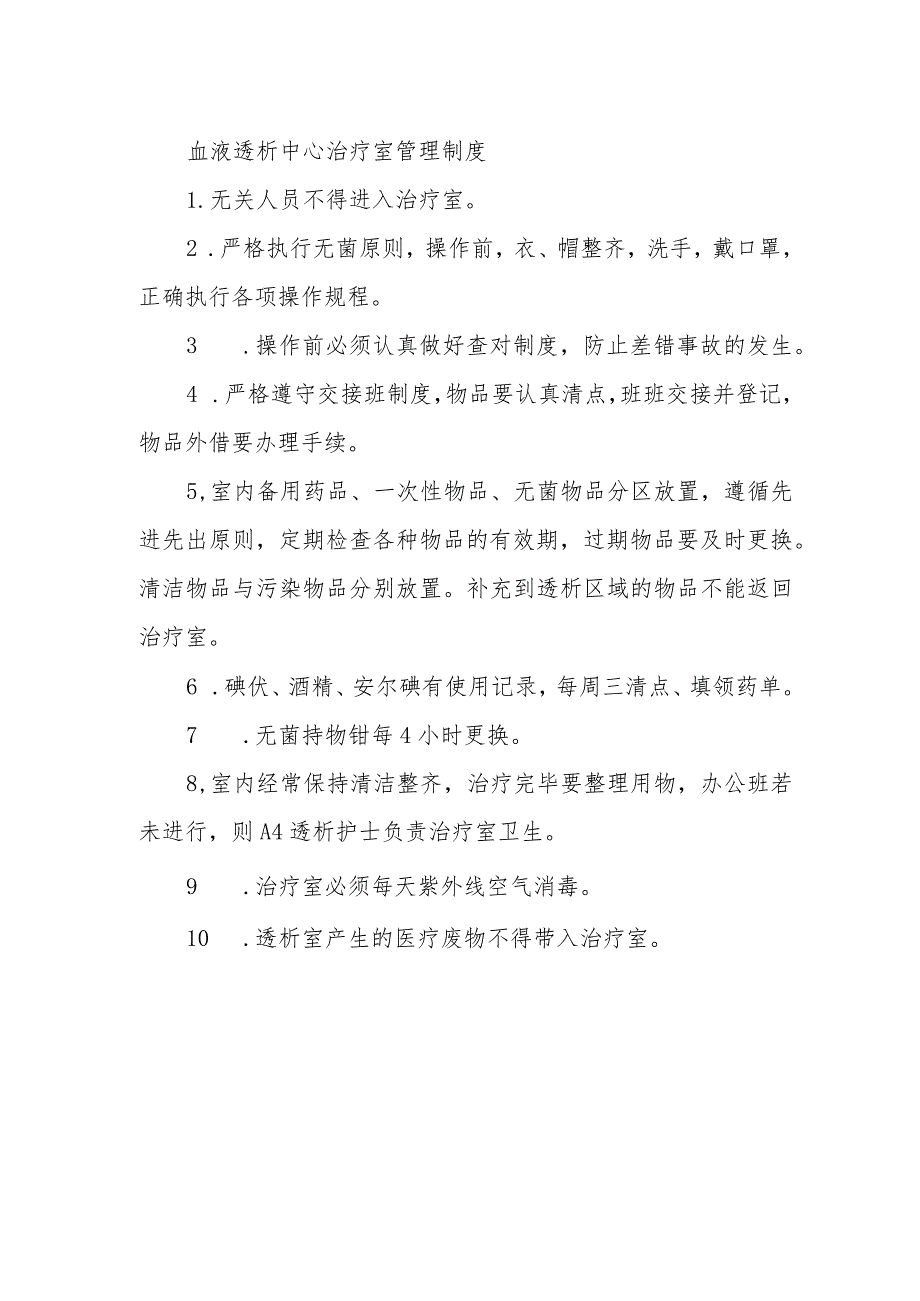 血液透析中心治疗室管理制度
1.无关人员不得进入治疗室。
2 .严格执行无菌原则，操作前，衣、帽整齐，洗手，戴口罩，
正确执行各项操作规程。
3 .操作前必须认真做好查对制度，防止差错事故的发生。
4 .严格遵守交接班制度,物品要认真清点,班班交接并登记，
物品外借要办理手续。
5,室内备用药品、一次性物品、无菌物品分区放置，遵循先
进先出原则，定期检查各种物品的有效期，过期物品要及时更换。
清洁物品与污染物品分别放置。补充到透析区域的物品不能返回
治疗室。
6 .碘伏、酒精、安尔碘有使用记录,每周三清点、填领药单。
7 .无菌持物钳每4小时更换。
8,室内经常保持清洁整齐，治疗完毕要整理用物，办公班若
未进行，则A4透析护士负责治疗室卫生。
9 .治疗室必须每天紫外线空气消毒。
10 .透析室产生的医疗废物不得带入治疗室。